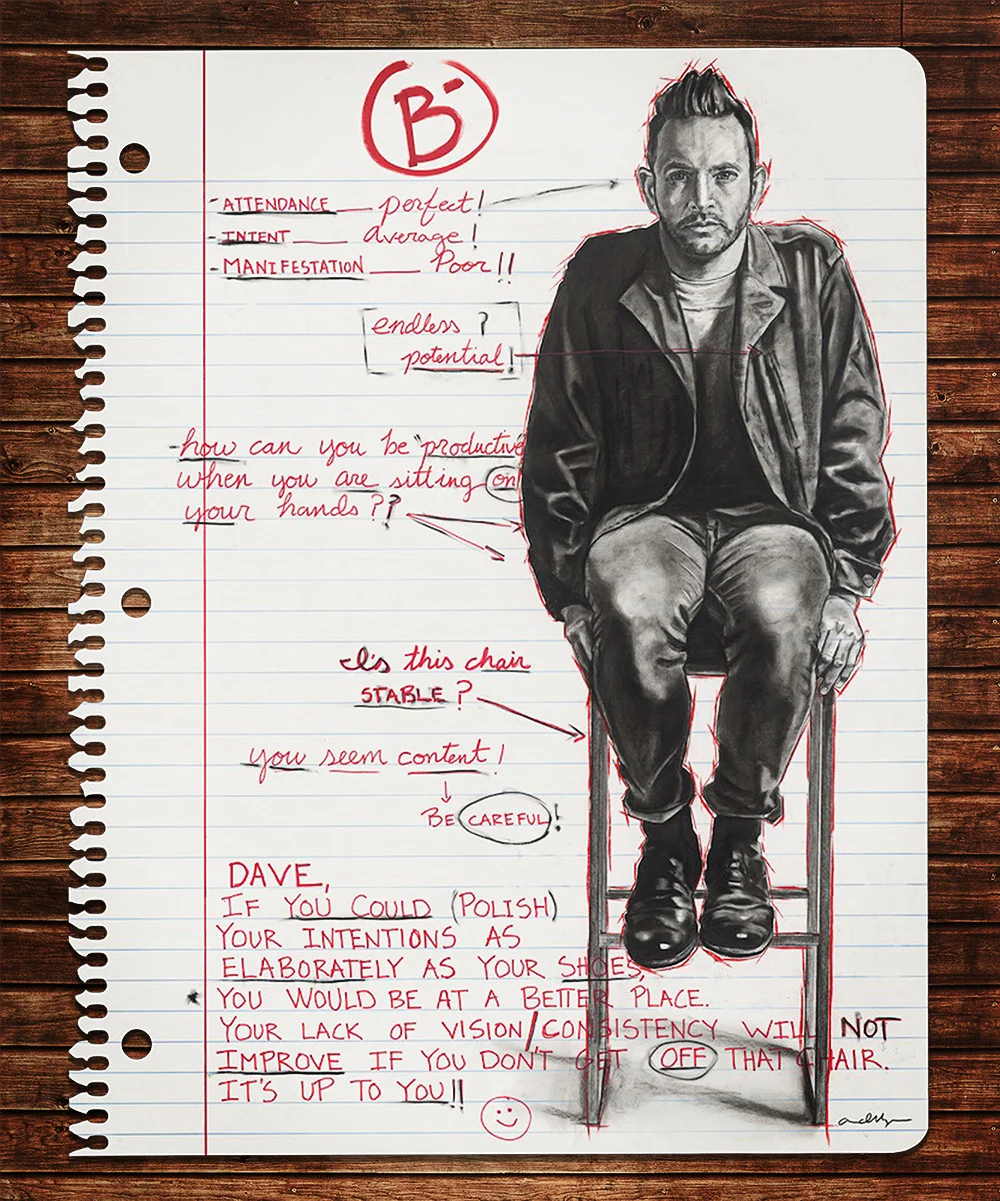 B-
- ATTENDANCE — perfect!
- INTENT — average!
- MANIFESTATION — Poor!!
endless ?
potential!
- how can you be "productive
when you are sitting on
your hands??
Is this chair
STABLE?
you seem content!
BE CAREFUL!
DAVE,
IF YOU COULD (POLISH)
YOUR INTENTIONS AS
ELABORATELY AS YOUR SHOES,
* YOU WOULD BE AT A BETTER PLACE.
YOUR LACK OF VISION/CONSISTENCY WILL NOT
IMPROVE IF YOU DON'T GET OFF THAT CHAIR.
IT'S UP TO YOU!!